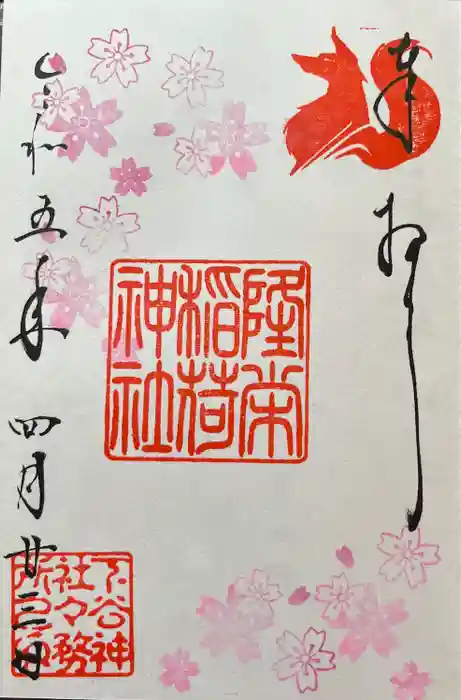 奉拝
隆栄
稲荷
神社
令和五年四月廿三日
下谷神
社々務
所之印